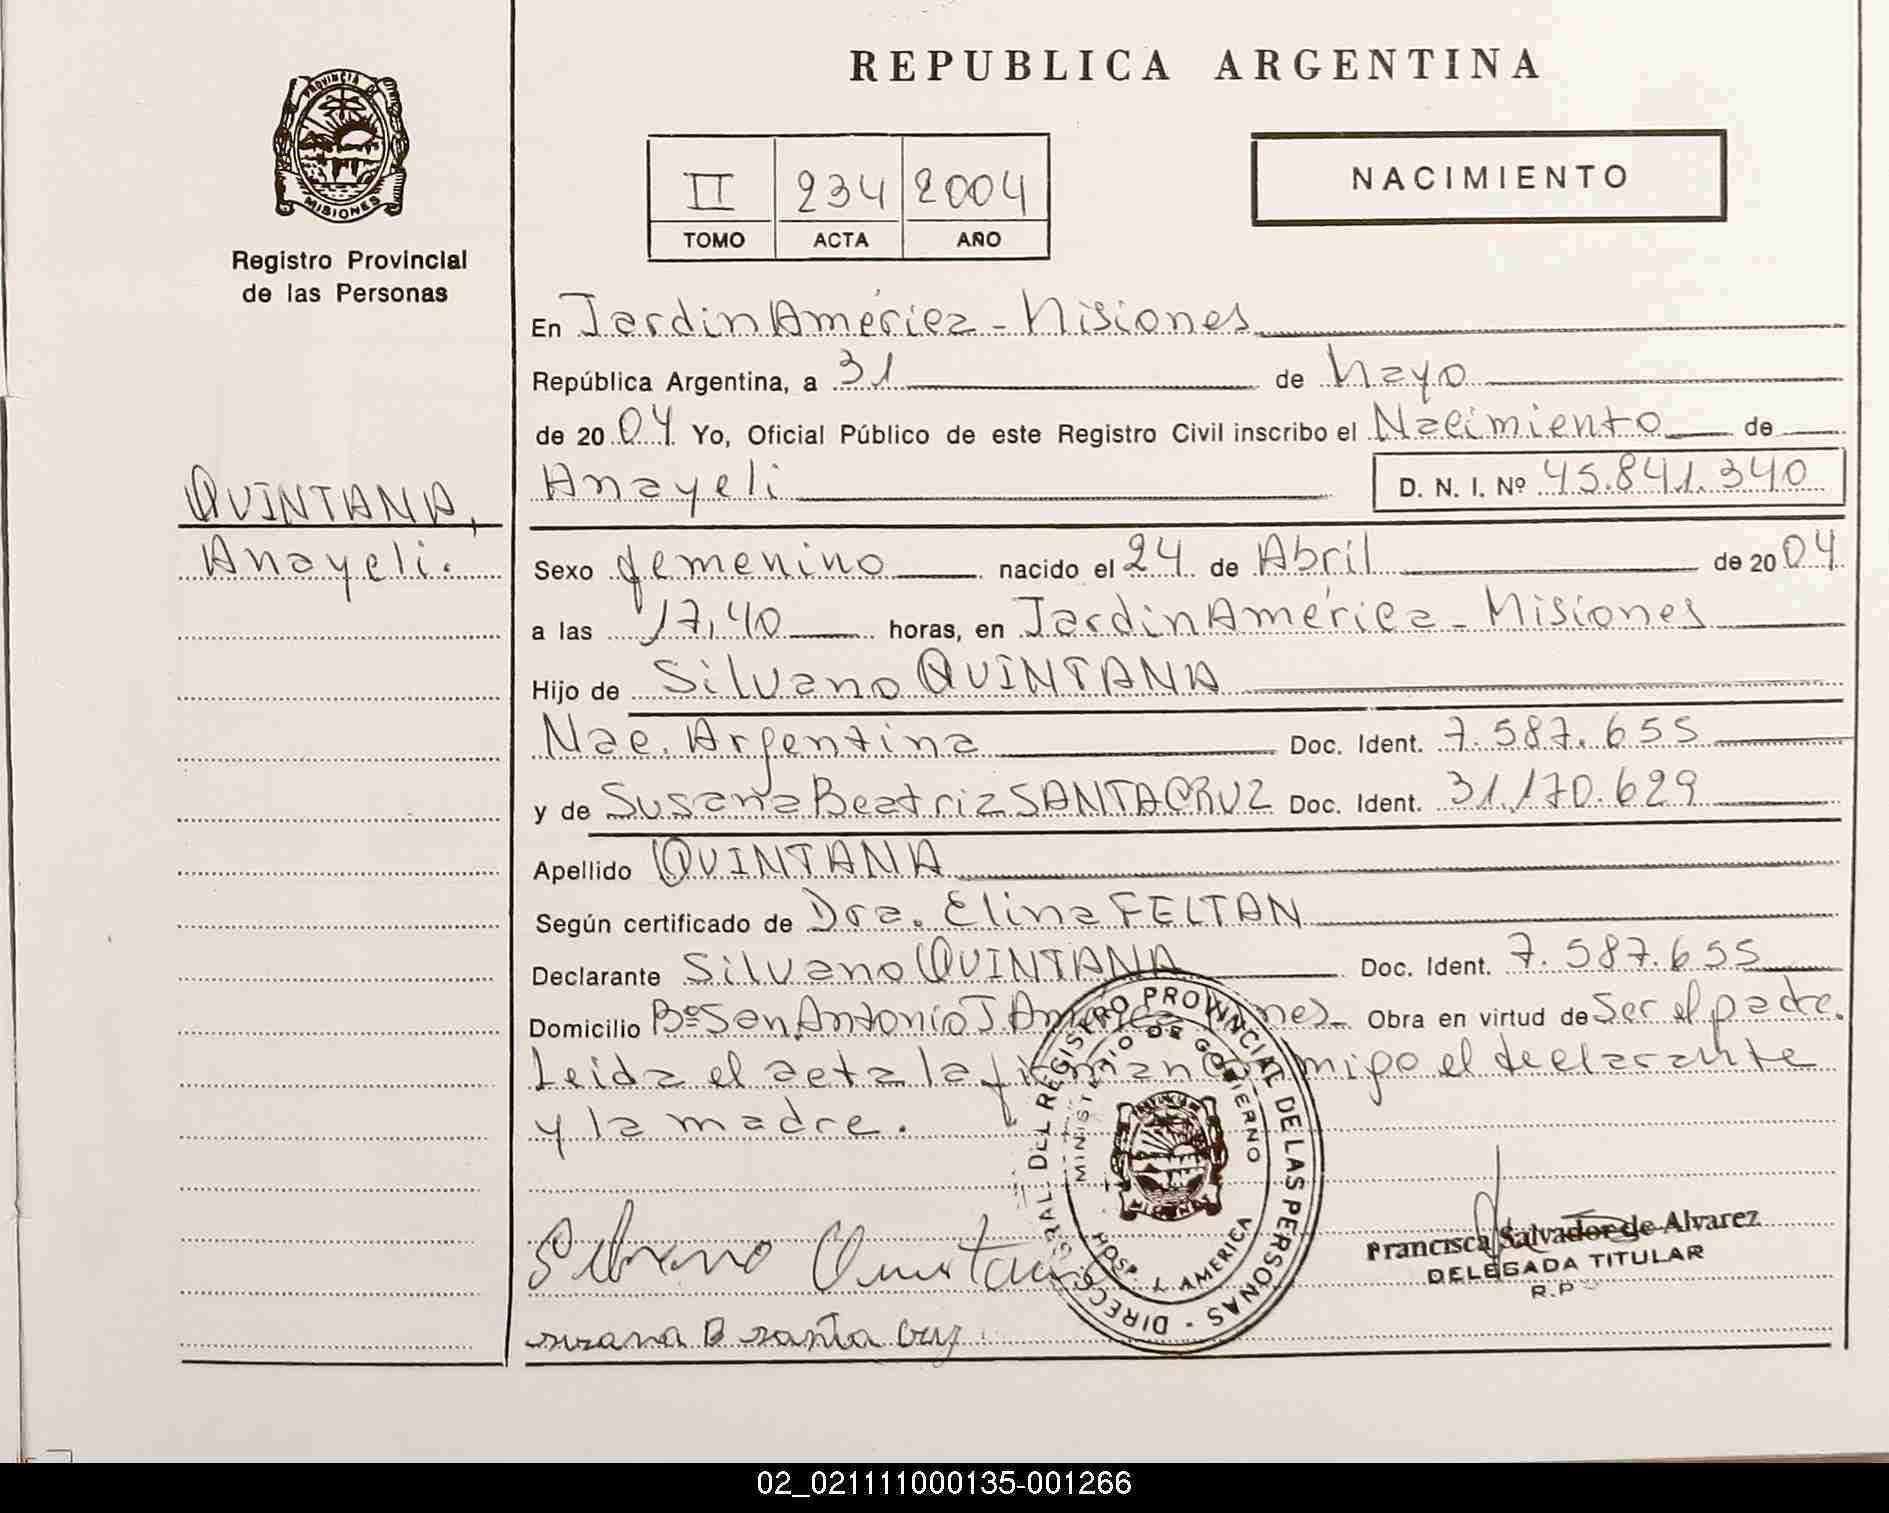 REPUBLICA ARGENTINA
PROVINCIA DE
MISIONES
Registro Provincial
de las Personas
II 234 2004
TOMO ACTA AÑO
NACIMIENTO
En Jardin América - Misiones
República Argentina, a 31 de Mayo
de 2004 Yo, Oficial Público de este Registro Civil inscribo el Nacimiento de
Anayeli D. N. I. Nº 45.841.340
QUINTANA,
Anayeli.
Sexo femenino nacido el 24 de Abril de 2004
a las 17,40 horas, en Jardin América - Misiones
Hijo de Silvano QUINTANA
Nac. Argentina Doc. Ident. 7.587.655
y de Susana Beatriz SANTACRUZ Doc. Ident. 31.170.629
Apellido QUINTANA
Según certificado de Dra. Elina FELTAN
Declarante Silvano QUINTANA Doc. Ident. 7.587.655
Domicilio Bº San Antonio J. América Obra en virtud de Ser el padre.
Leida el acta la firman conmigo el declarante
y la madre.
DIRECC GRAL. DEL REGISTRO PROVINCIAL DE LAS PERSONAS
MINISTERIO DE GOBIERNO
HOSP. AMERICA
Silvano Quintana
susana B santa cruz
Francisca Salvador de Alvarez
DELEGADA TITULAR
R.P
02_021111000135-001266